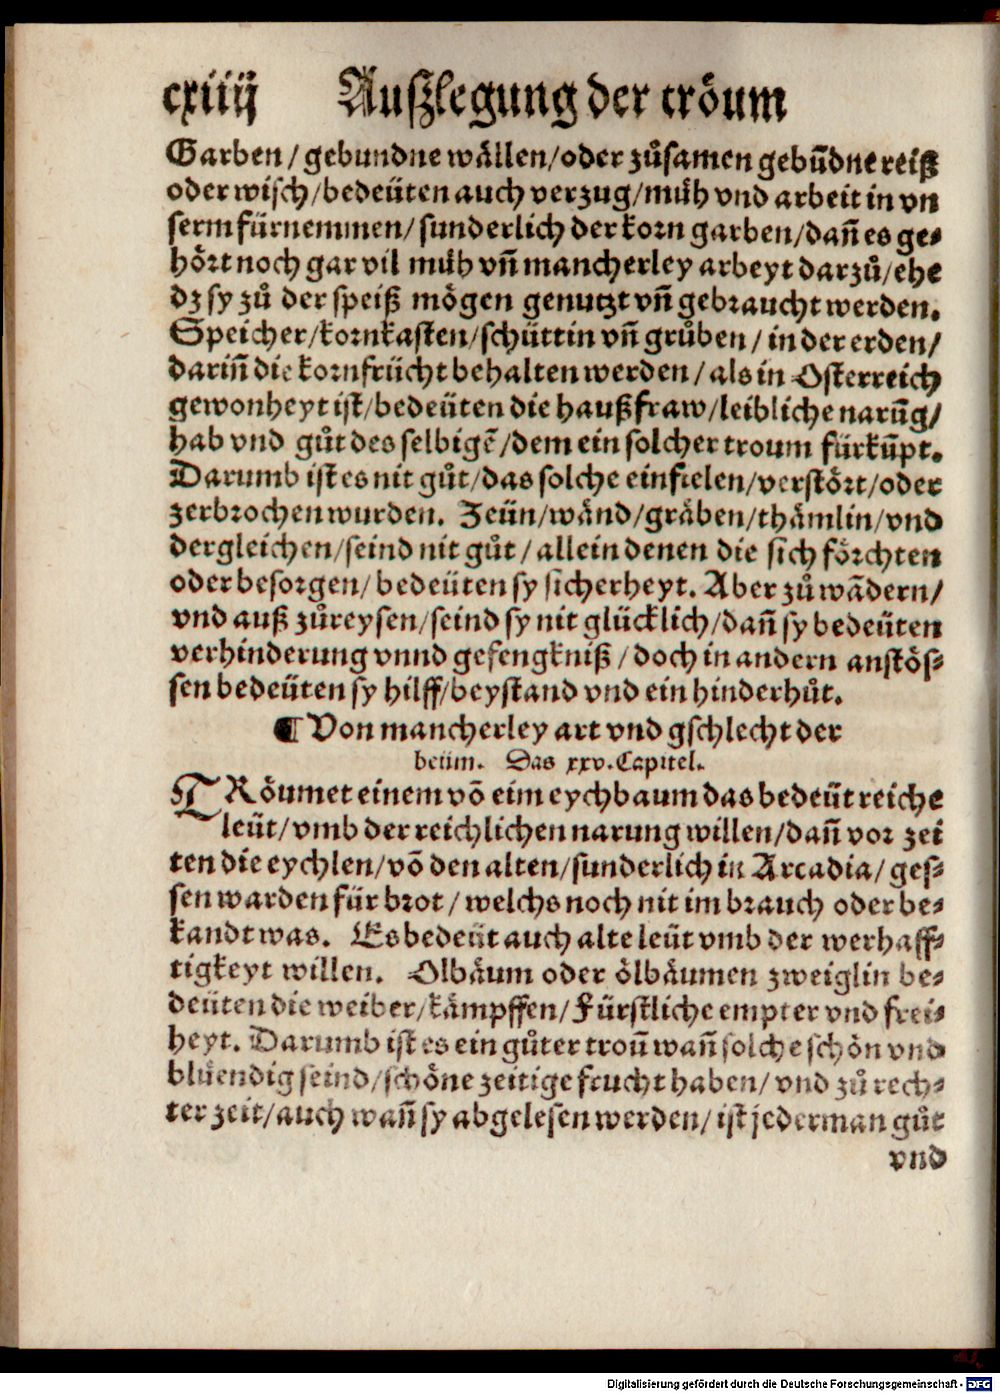 cxiiij Auſzlegung der troͤum
Garben / gebundne waͤllen / oder zuͦſamen gebūdne reiß
oder wiſch / bedeüten auch verzug / muͤh vnd arbeit in vn
ſerm fürnemmen / ſunderlich der korn garben / dañ es ge⸗
hoͤrt noch gar vil muͤh vñ mancherley arbeyt darzuͦ / ehe
dz ſy zuͦ der ſpeiß moͤgen genutzt vñ gebraucht werden.
Speicher / kornkaſten / ſchüttin vñ gruͦben / in der erden /
dariñ die kornfrücht behalten werden / als in Oſterreich
gewonheyt iſt / bedeüten die haußfraw / leibliche narūg /
hab vnd guͦt des ſelbigē / dem ein ſolcher troum fürkūpt.
Darumb iſt es nit guͦt / das ſolche einfielen / verſtoͤrt / oder
zerbrochen wurden. Zeün / waͤnd / graͤben / thaͤmlin / vnd
dergleichen / ſeind nit guͦt / allein denen die ſich foͤrchten
oder beſorgen / bedeüten ſy ſicherheyt. Aber zuͦ wādern /
vnd auß zuͦreyſen / ſeind ſy nit glücklich / dañ ſy bedeüten
verhinderung vnnd gefengkniß / doch in andern anſtoͤſ⸗
ſen bedeüten ſy hilff / beyſtand vnd ein hinderhuͦt.
¶ Von mancherley art vnd gſchlecht der
beüm. Das xxv. Capitel.
TRoͤumet einem vō eim eychbaum das bedeüt reiche
leüt / vmb der reichlichen narung willen / dañ vor zei
ten die eychlen / vō den alten / ſunderlich in Arcadia / geſ⸗
ſen warden für brot / welchs noch nit im brauch oder be⸗
kandt was. Es bedeüt auch alte leüt vmb der werhaff⸗
tigkeyt willen. Olbaͤum oder oͤlbaͤumen zweiglin be⸗
deüten die weiber / kaͤmpffen / Fürſtliche empter vnd frei⸗
heyt. Darumb iſt es ein guͦter troū wañ ſolche ſchoͤn vnd
bluͤendig ſeind / ſchoͤne zeitige frucht haben / vnd zuͦ rech⸗
ter zeit / auch wañ ſy abgeleſen werden / iſt jederman guͦt
vnd
Digitalisierung gefördert durch die Deutsche Forschungsgemeinschaft - DFG